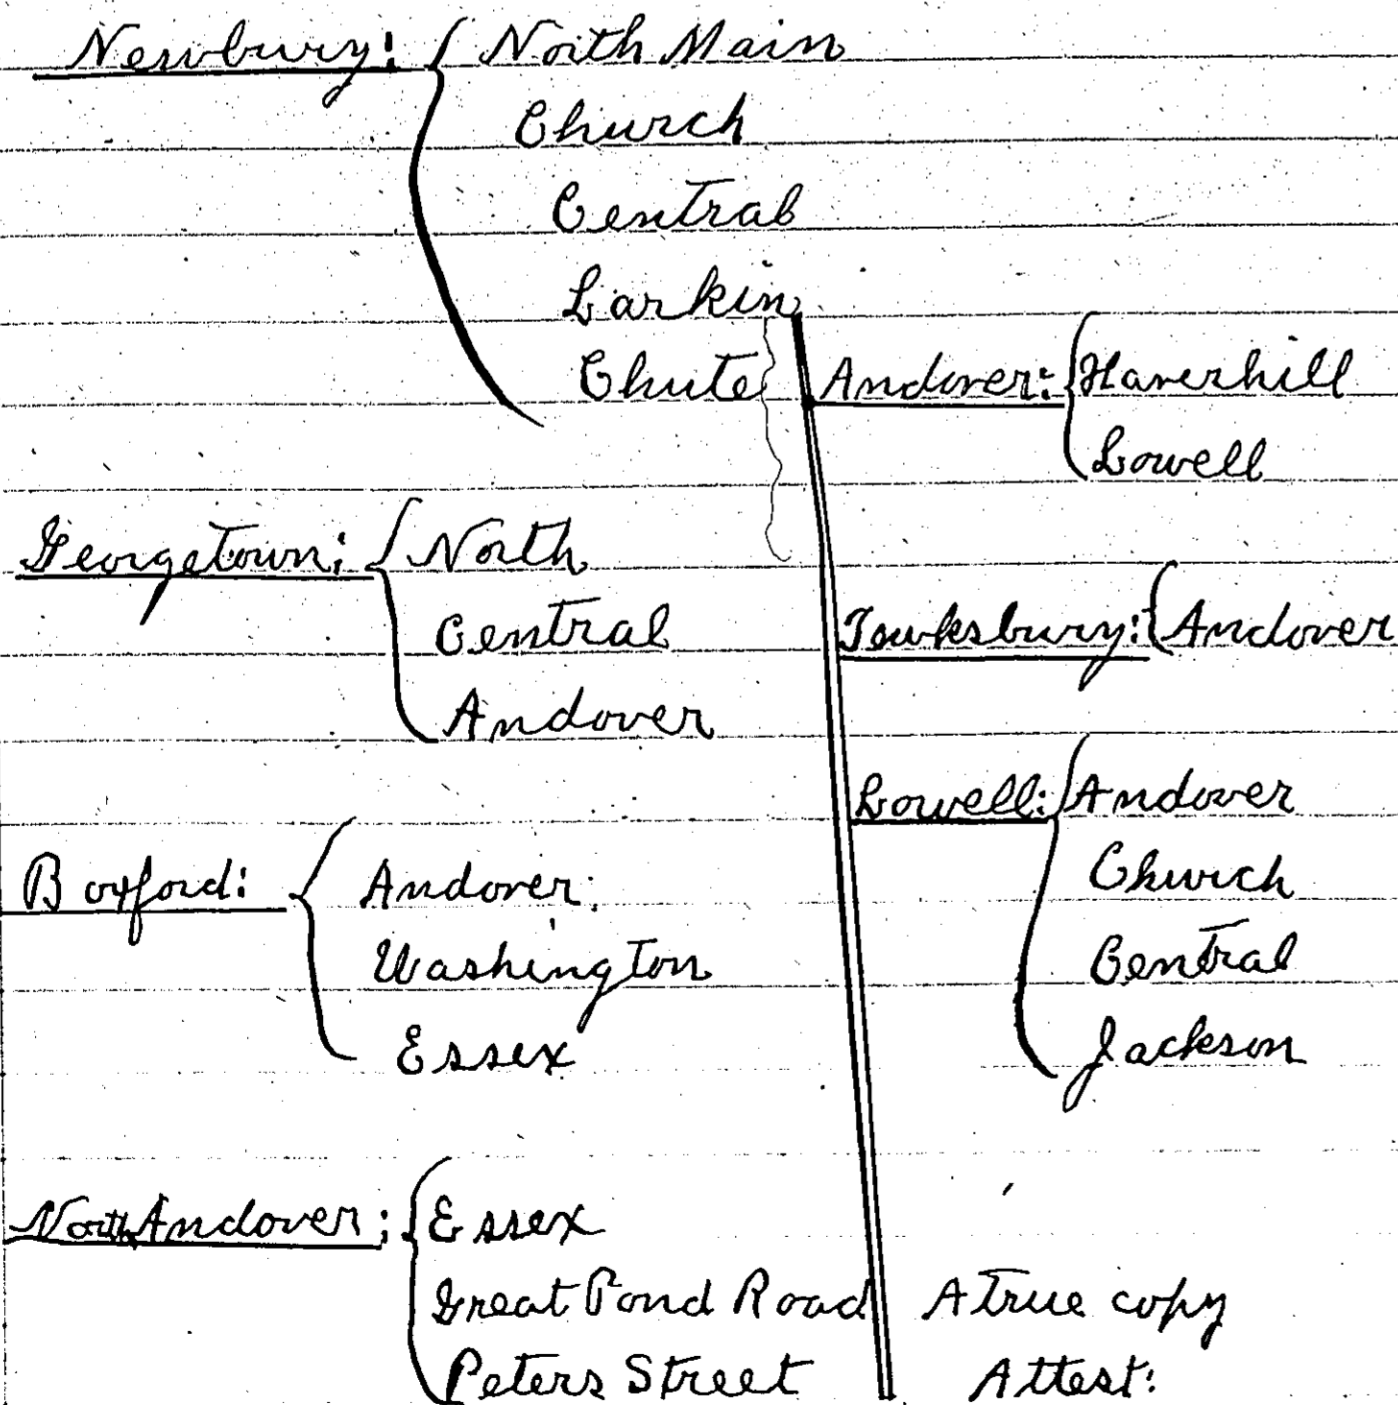 Newbury: { North Main
Church
Central
Larkin
Chute
Georgetown: { North
Central
Andover
Boxford: { Andover
Washington
Essex
North Andover: { Essex
Great Pond Road
Peters Street
Andover: { Haverhill
Lowell
Tewksbury: { Andover
Lowell: { Andover
Church
Central
Jackson
A true copy
Attest: